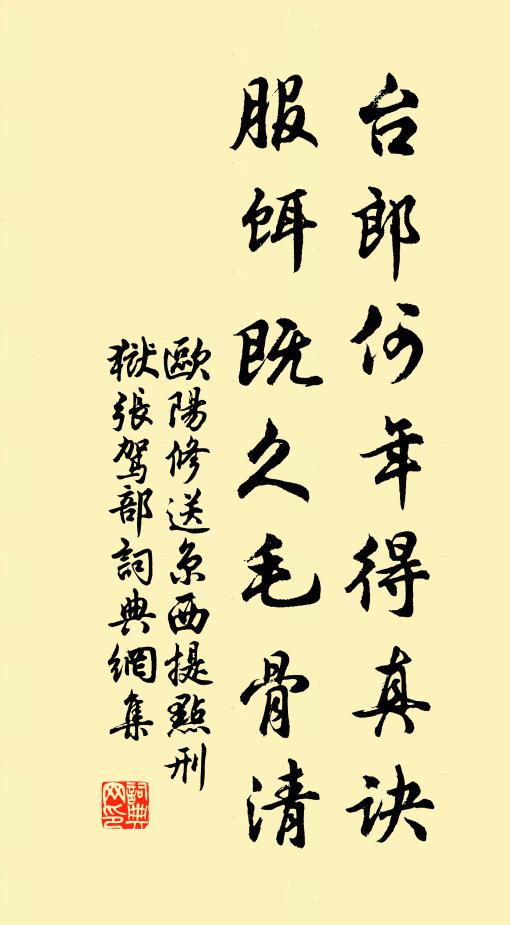 台郎何年得真诀
服饵既久毛骨清
歐陽修送京西提點刑
獄張駕部詞典網集
詞典网印